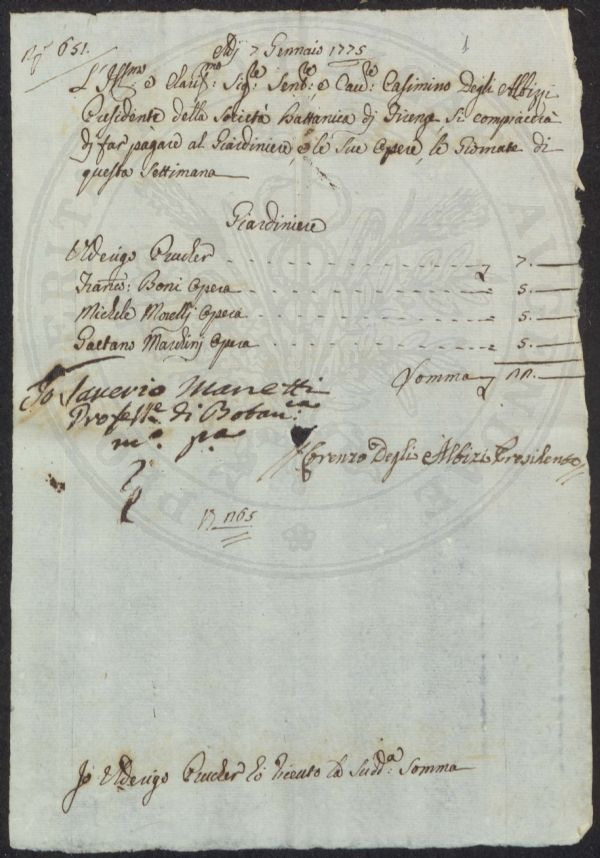 651.
Adj 7 Gennaio 1775
L'Ill:mo e Clariss:mo Sig:re Sen:re e Cav:re Casimirro Degli Albizzi
Presidente della Società Bottanica dj Firenze si compiacerà
dj far pagare al Giardiniere, e le Sue Opere, le Giornate di
questa Settimana
Giardiniere
Ulderigo Prucher 7.
Franc:o Boni Opera 5.
Michele Morellj Opera 5.
Gaetano Mardinj Opera 5.
Somma 22.
Io Saverio Manetti
Profess:re di Botan:ca
m:o p:a
Lorenzo Degli Albizi Presidente
1165
Jo Ulderigo Prucher ò riceuto la Sudd:a Somma